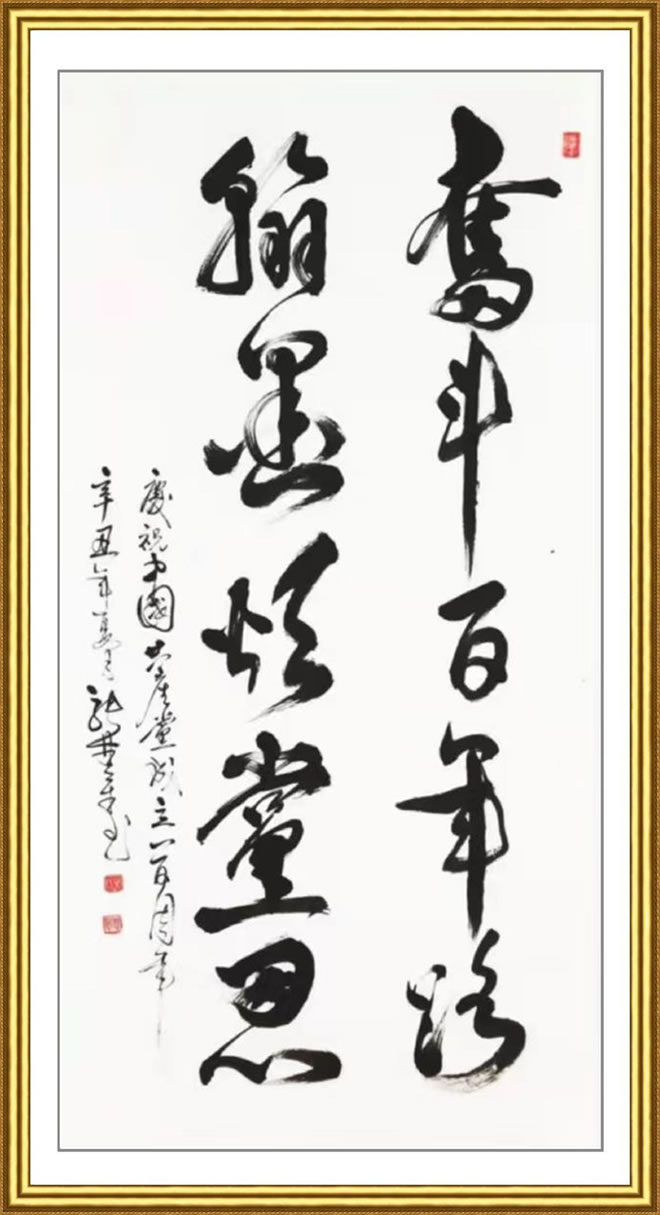 奮斗百年路
翰墨颂黨恩
慶祝中國共產黨成立一百周年
辛丑年夏月